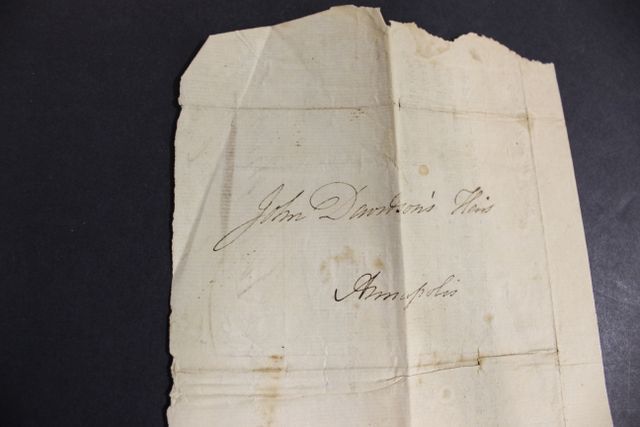 John Davidson's Heirs
Annapolis